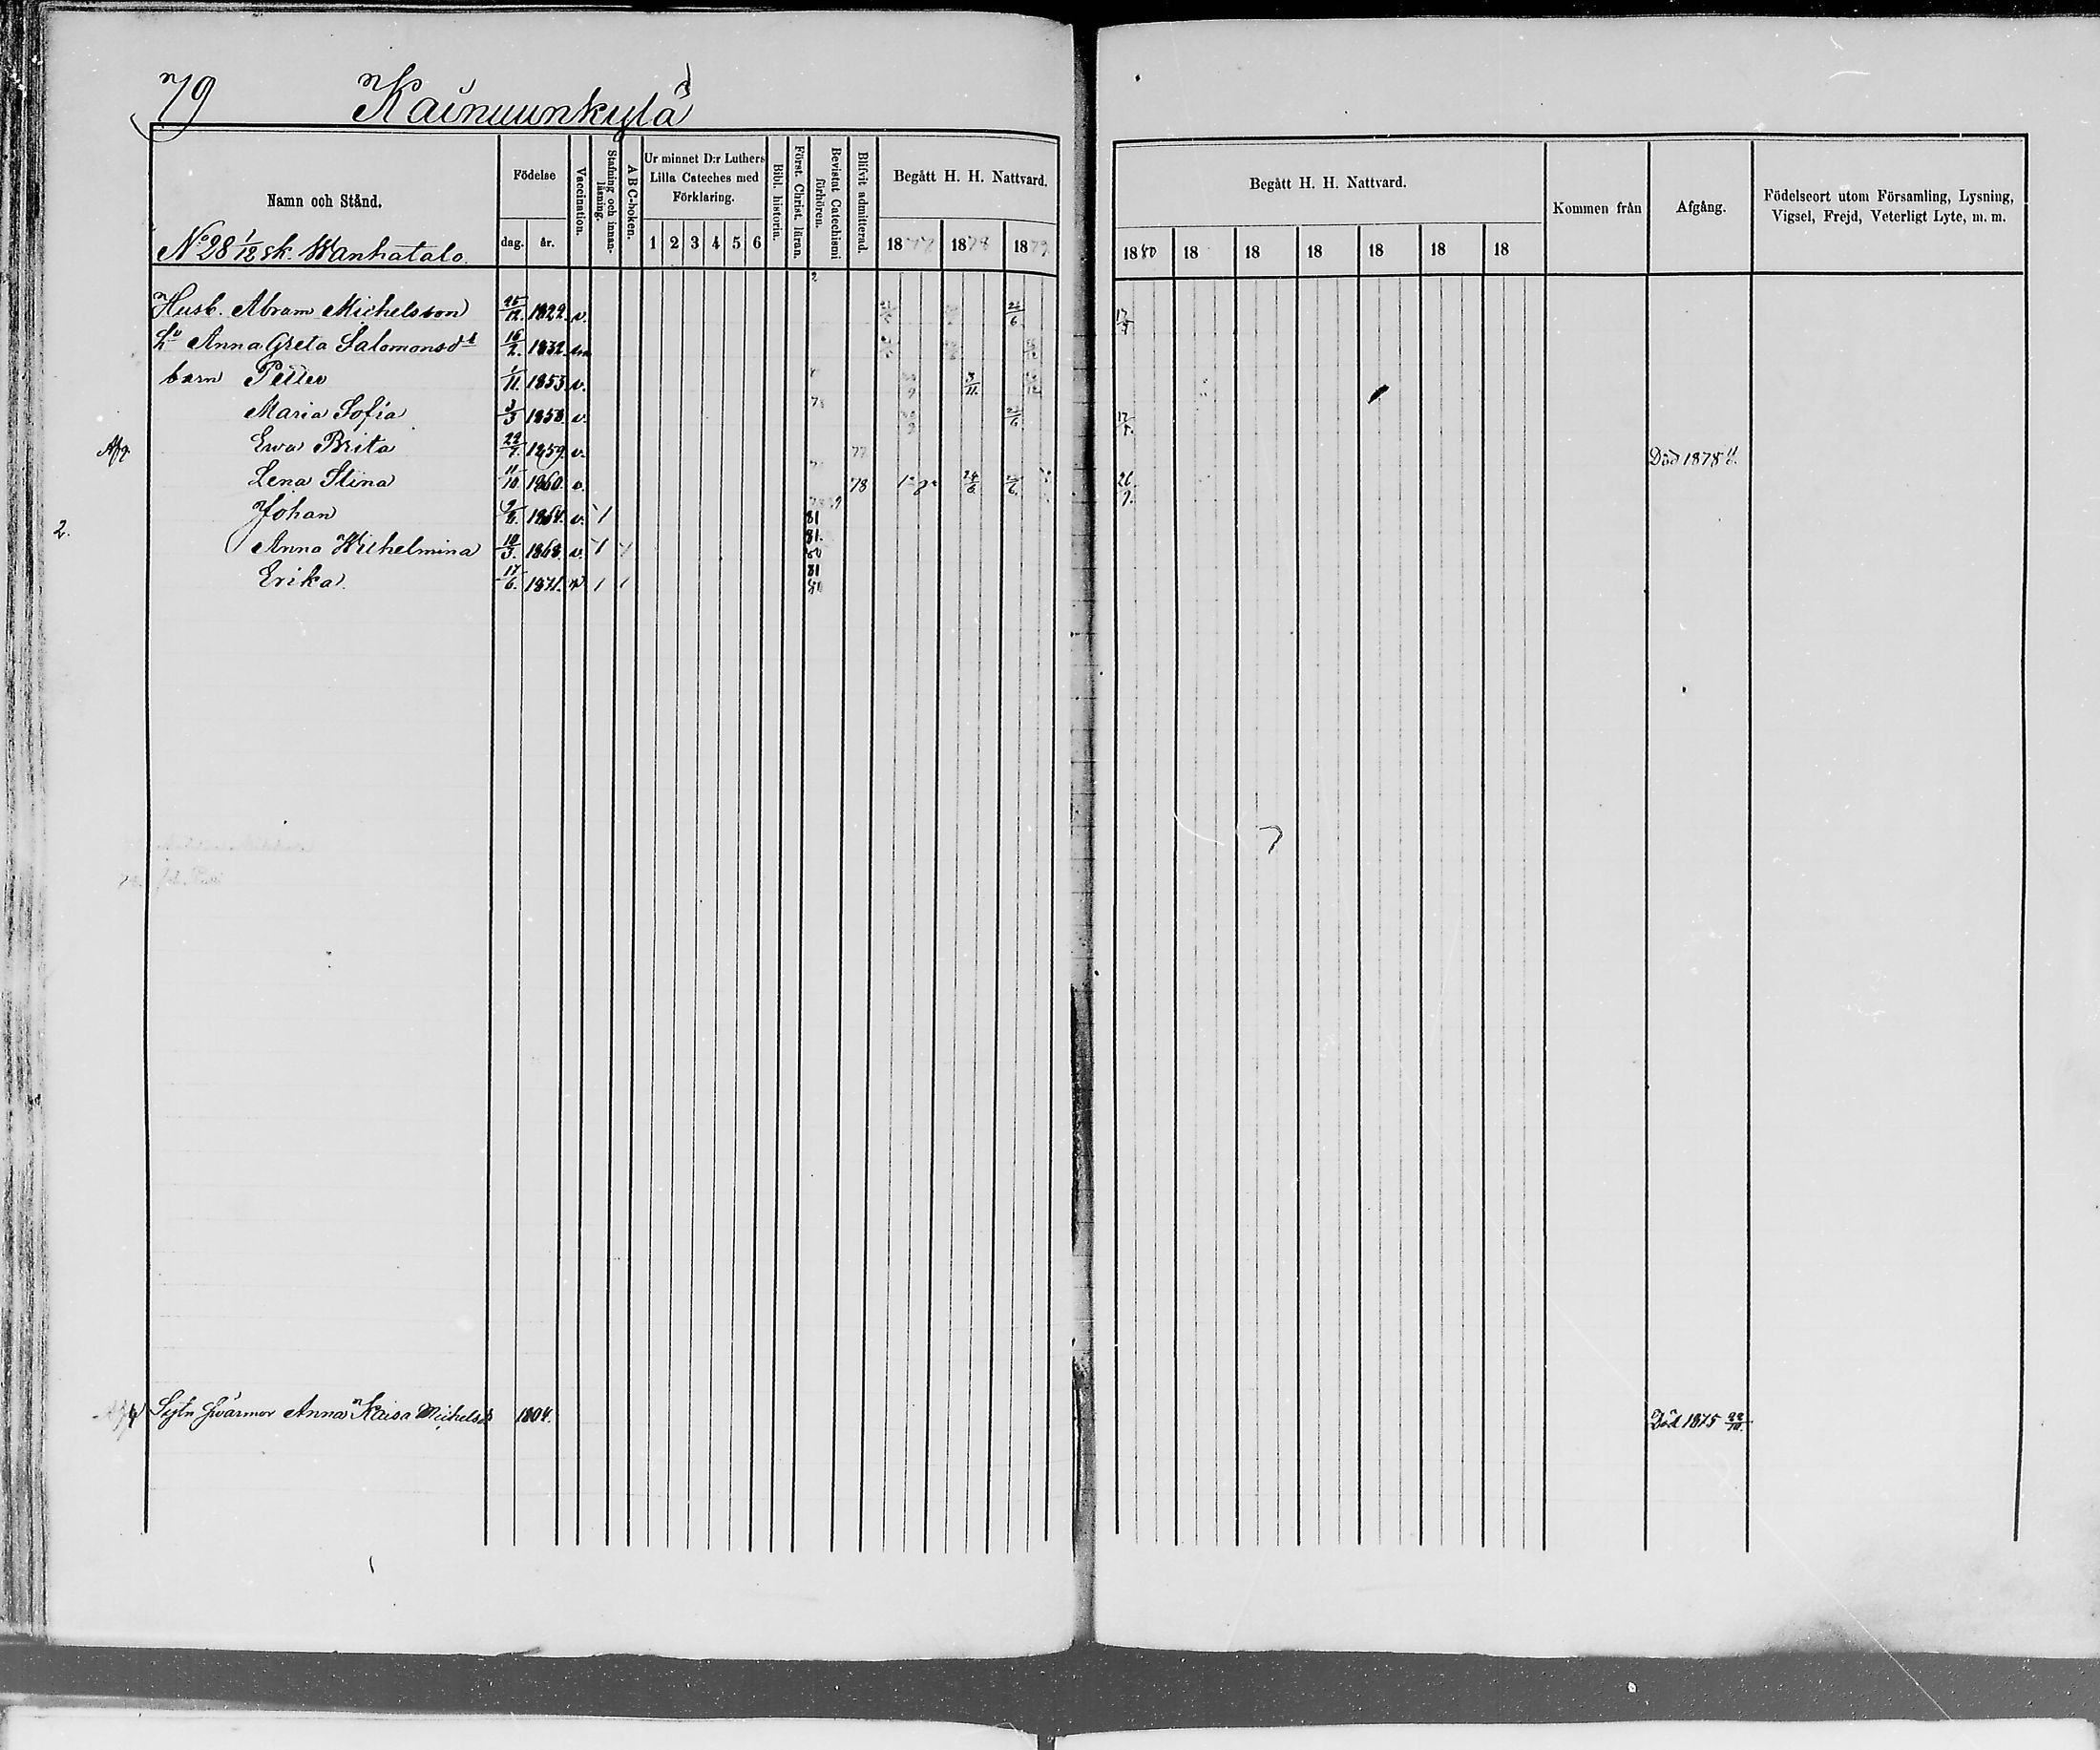 79 Kainuunkylä
Namn och Stånd. Födelse Vaccination. Stafning och innanläsning. ABC-boken. Ur minnet D:r Luthers Lilla Cateches med Förklaring. Bibl. historia. Först. Christ. läran. Bevistat Catechismi förhören. Blifvit admitterad. Begått H. H. Nattvard. Begått H. H. Nattvard. Kommen från Afgång. Födelseort utom Församling, Lysning, Vigsel, Frejd, Veterligt Lyte, m. m.
dag. år. 1 2 3 4 5 6 1877 1878 1879 1880 18 18 18 18 18 18
No 28 1/12 sk. Wanhatalo.
Husb. Abram Michelsson 25/12. 1822. v.
Hu Anna Greta Salomonsdr 16/2. 1832.
barn Petter 1/11. 1853. v. 3/11.
Maria Sofia 3/3 1858. v. 17/5.
Ewa Brita 22/7. 1859. v. 77 Död 1878
Lena Stina 11/10 1860. v. 78 24/6 26/9.
Johan 1864. v. 1 81
2. Anna Wilhelmina 10/3. 1868. v. 1 1 81. 80
Erika. 17/6. 1871. v. 1 1 81 80
Sytn. Swärmor Anna Kaisa Michelsdr 1804. Död 1875 22/10.